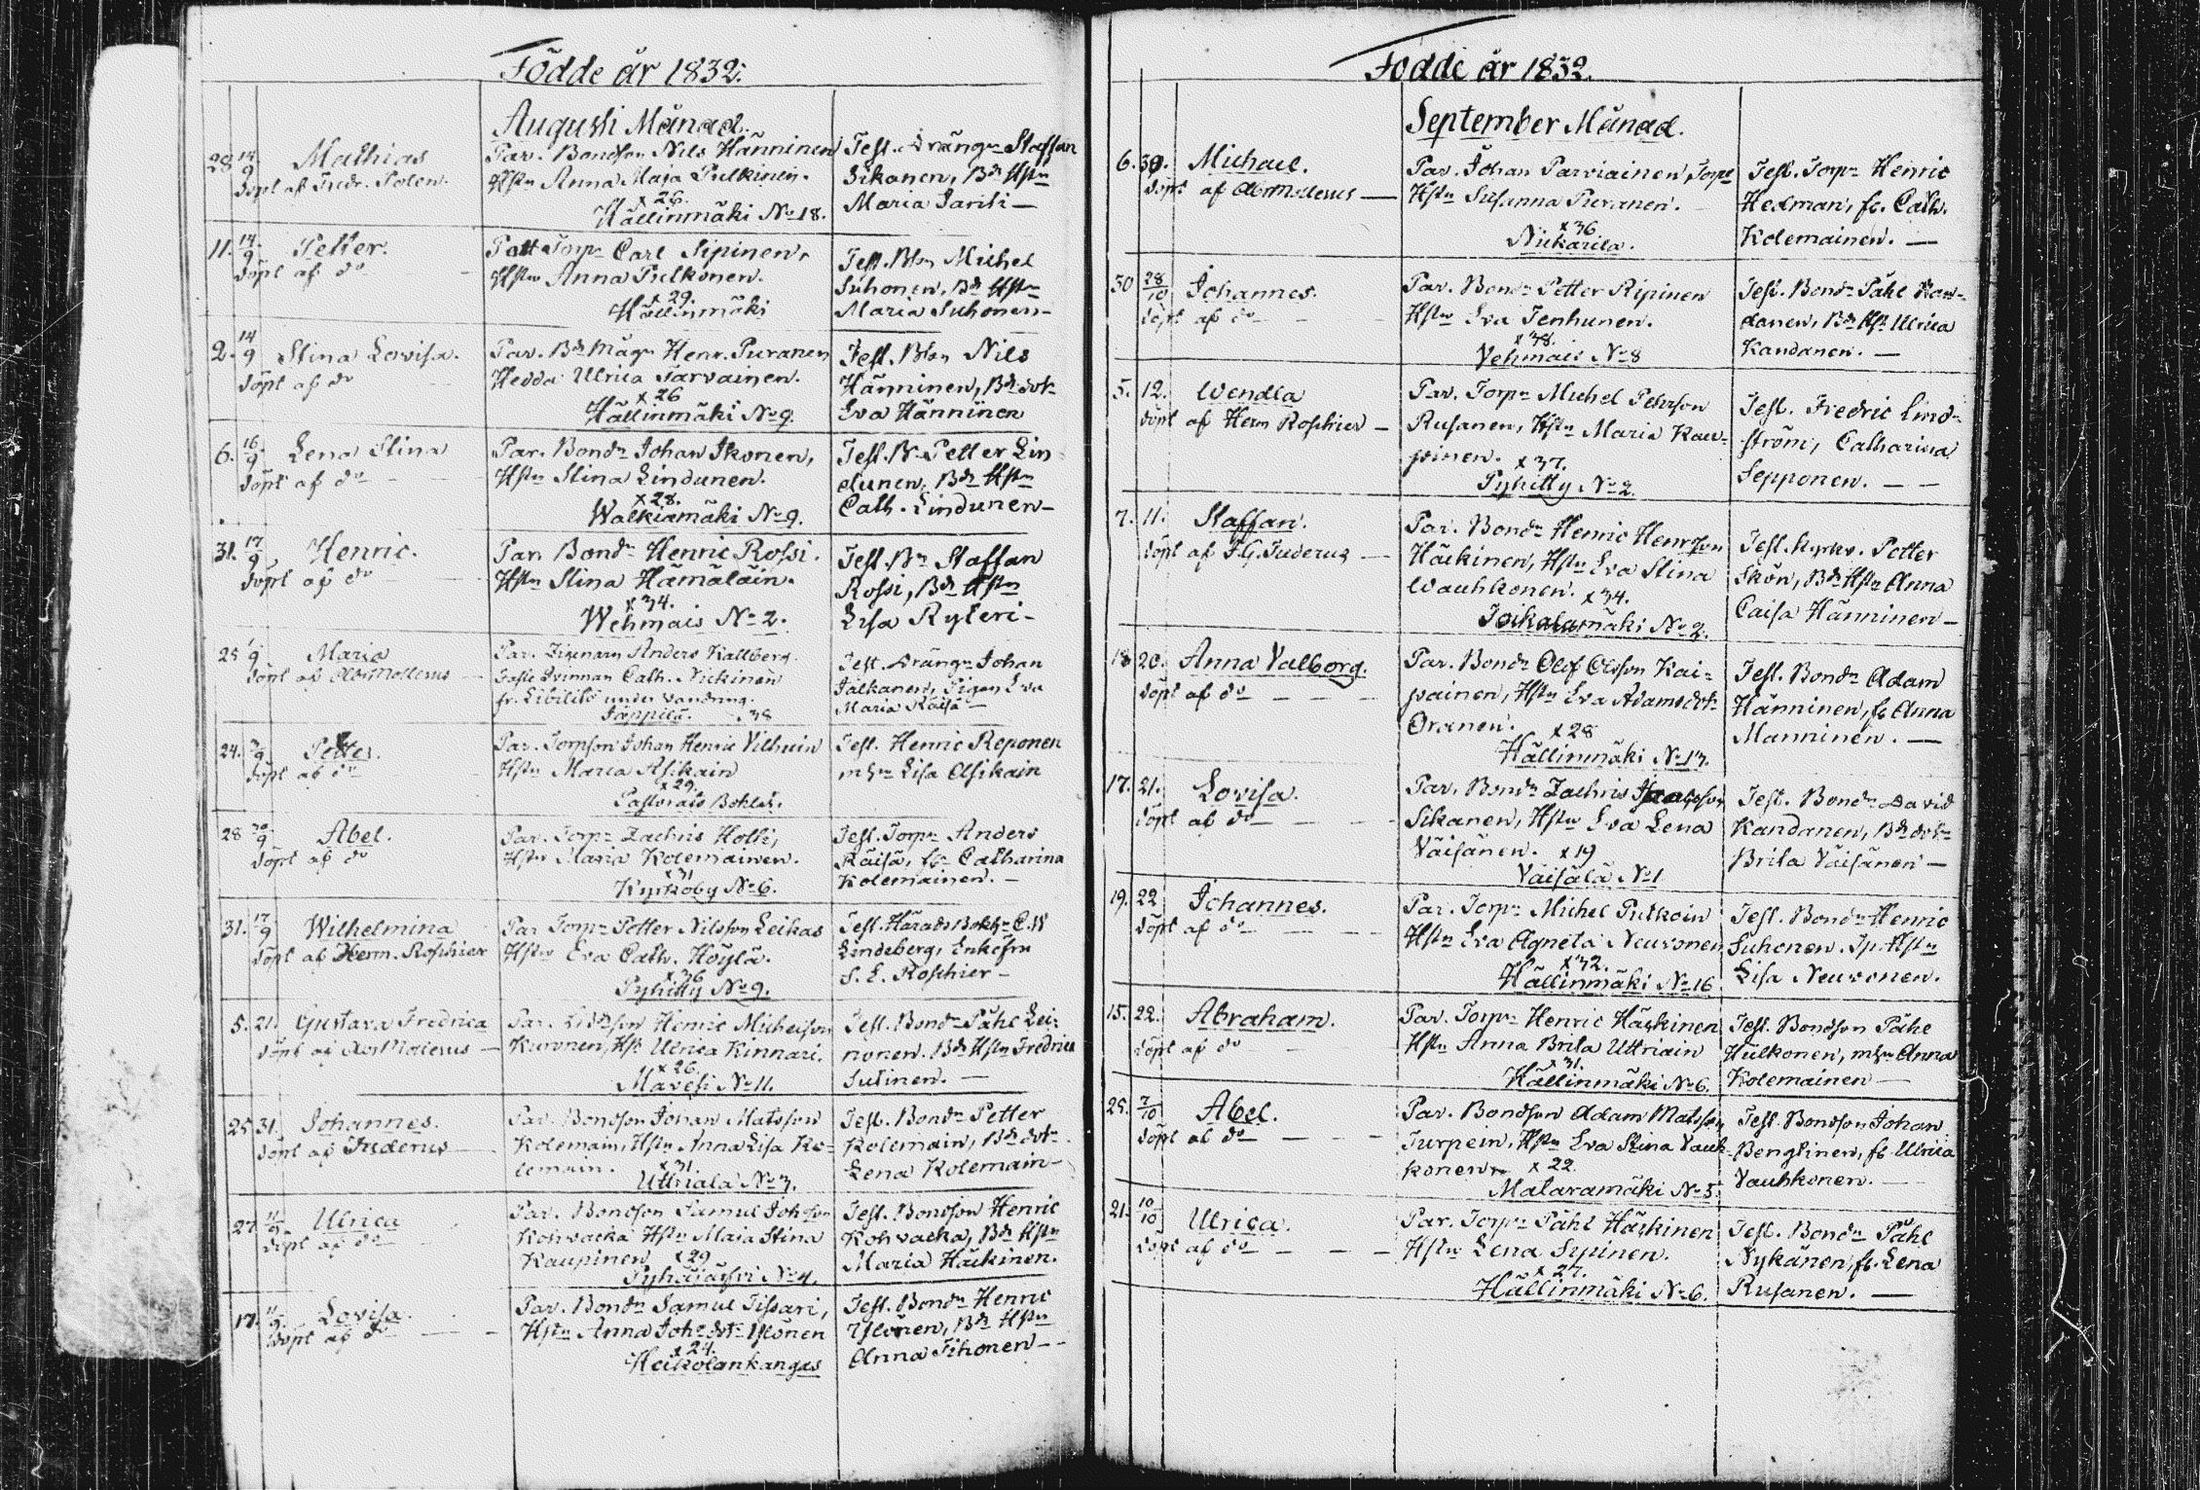 Födde år 1832.
Augusti Månad.
28 14/9 Mathias
Döpt af Fredr. Polen.
Par. Bondson Nils Hänninen
Hstr Anna Maja Pulkinen.
x 26.
Hällinmäki No 18.
Test. Drängn Staffan
Sikanen, Bd Hstn
Maria Parili —
11. 14/9 Petter.
Döpt af do
Torpn Carl Sipinen,
Hstr Anna Pulkonen.
x 29.
Hällinmäki
Test. Bson Michel
Suhonen, Bd Hstn
Maria Suhonen —
2. 14/9 Stina Lovisa.
Döpt af do
Par. Bd Mågn Henr. Puranen
Hedda Ulrica Tarvainen.
x 26
Hällinmäki No 9.
Test. Bson Nils
Hänninen, Bd dotr
Eva Hänninen
6. 16/9 Lena Stina
Döpt af do
Par. Bondn Johan Ikonen,
Hstr Stina Lindunen.
x 28.
Walkiamäki No 9.
Test. Bn Petter Lin
dunen, Bd Hstn
Cath. Lindunen —
31. 17/9 Henric.
Döpt af do
Par. Bondn Henric Rossi.
Hstr Stina Hämäläin.
x 34.
Wehmais No 2.
Test. Bn Staffan
Rossi, Bd Hstn
Lisa Ryteri —
25 1/9 Maria
Döpt af Ad: Mollerus
Par. Zigenarn Anders Kallberg.
Qvinnan Cath. Nickinen
fr. Libilits under vandring.
Jäppilä. x 38
Test. Drängn Johan
Jalkanen, Pigan Eva
Maria Räisä —
24. 2/9 Petter.
Döpt af do
Par. Torpson Johan Henric Vilhuin
Hstr Maria Asikain
x 29.
Pastorats Bohlet.
Test. Henric Reponen
mhn Lisa Asikain
28 30/9 Abel.
Döpt af do
Par. Torpn Zachris Holli,
Hstr Maria Kolemainen.
x 31
Kyrkoby No 6.
Test. Torpn Anders
Räisä, fb Catharina
Kolemainen. —
31. 17/9 Wilhelmina
Döpt af Herm. Roschier
Par. Torpn Petter Nilsson Leikas
Hstr Eva Cath. Höylä.
x 36
Pyhitty No 9.
Test. Härads Bokhr C.W
Lindeberg, Enkefru
S. E. Roschier —
5. 21. Gustava Fredrica
Döpt af Ad: Mollerus —
Par. Henric Michelson
Kuronen, Hstr Ulrica Kinnari.
x 26.
Mavesi No 11.
Test. Bondn Påhl Lei-
nonen. Bd Hstn Fredrica
Sutinen. —
25 31. Johannes.
Döpt af Juderus —
Par. Bondson Johan Matsson
Kolemain, Hstr Anna Lisa Ko=
lemain. x 31.
Uttriala No 3.
Test. Bondn Petter
Kolemain, Bd dotr
Lena Kolemain —
27 11/9 Ulrica
Döpt af do
Par. Bondson Samul Johsson
Kohvacka Hstr Maia Stina
Kaupinen x 29
Pyhäjärvi No 4.
Test. Bondson Henric
Kohvacka, Bd Hstn
Maria Häckinen.
17. 11/9 Lovisa.
Döpt af do
Par. Bondn Samul Tissari,
Hstr Anna Johsdotr Ylönen
x 24.
Heikolankangas
Test. Bondn Henric
Ylönen, Bd Hstn
Anna Tihonen —
Födde år 1832.
September Månad.
6. 30. Michael.
Döpt af Ad: Mollerus —
Par. Johan Parviainen, Torpr
Hstr Susanna Puranen.
x 36
Nickarila.
Test. Torpn Henric
Hedman, fb. Cath.
Kolemainen. —
30 28/10 Johannes.
Döpt af do
Par. Bondn Petter Ripinen
Hstr Eva Tenhunen.
x 38.
Vehmais No 8
Test. Bondn Påhl Kan-
danen, Bd Hstr Ulrica
Kandanen. —
5. 12. Wendla
Döpt af Herm Roschier —
Par. Torpn Michel Pehrson
Rusanen, Hstr Maria Kau-
pinen. x 37.
Pyhitty No 2.
Test. Fredric Lind-
ström, Catharina
Sepponen. — —
7. 11. Staffan.
Döpt af F. G. Juderus —
Par. Bondn Henric Henrson
Häckinen, Hstr Eva Stina
Wauhkonen. x 34.
Joikalamäki No 2.
Test. Kyrkv. Petter
Skön, Bd Hstn Anna
Caisa Hänninen —
18 20. Anna Valborg.
Döpt af do
Par. Bondn Olof Olsson Kai=
painen, Hstr Eva Adamsdotr
Oranen. x 28
Hällinmäki No 13.
Test. Bondn Adam
Hänninen, fb Anna
Manninen. —
17. 21. Lovisa.
Döpt af do
Par. Bondn Zachris Isacsson
Sikanen, Hstr Eva Lena
Väisänen. x 19
Väisälä No 1
Test. Bondn David
Kandanen, Bd dotr
Brita Väisänen —
19. 22 Johannes.
Döpt af do
Par. Torpn Michel Putkoin
Hstr Eva Agneta Neuvonen
x 32.
Hällinmäki No 16
Test. Bondn Henric
Suhonen. Tp. Hstn
Lisa Neuvonen.
15. 22. Abraham.
Döpt af do
Par. Torpn Henric Häckinen
Hstr Anna Brita Uttriain
x 31.
Hällinmäki No 6.
Test. Bondson Påhl
Hulkonen, mhn Anna
Kolemainen —
25. 7/10 Abel.
Döpt af do
Par. Bondson Adam Matsson
Turpein, Hstr Eva Stina Vauh-
konen x 22.
Mataramäki No 5.
Test. Bondson Johan
Bengtinen, fb Ulrica
Vauhkonen. —
21. 10/10 Ulrica.
Döpt af do
Par. Torpn Påhl Häckinen
Hstr Lena Sipinen.
x 27.
Hällinmäki No 6.
Test. Bondn Påhl
Nykänen, fb. Lena
Rusanen. —